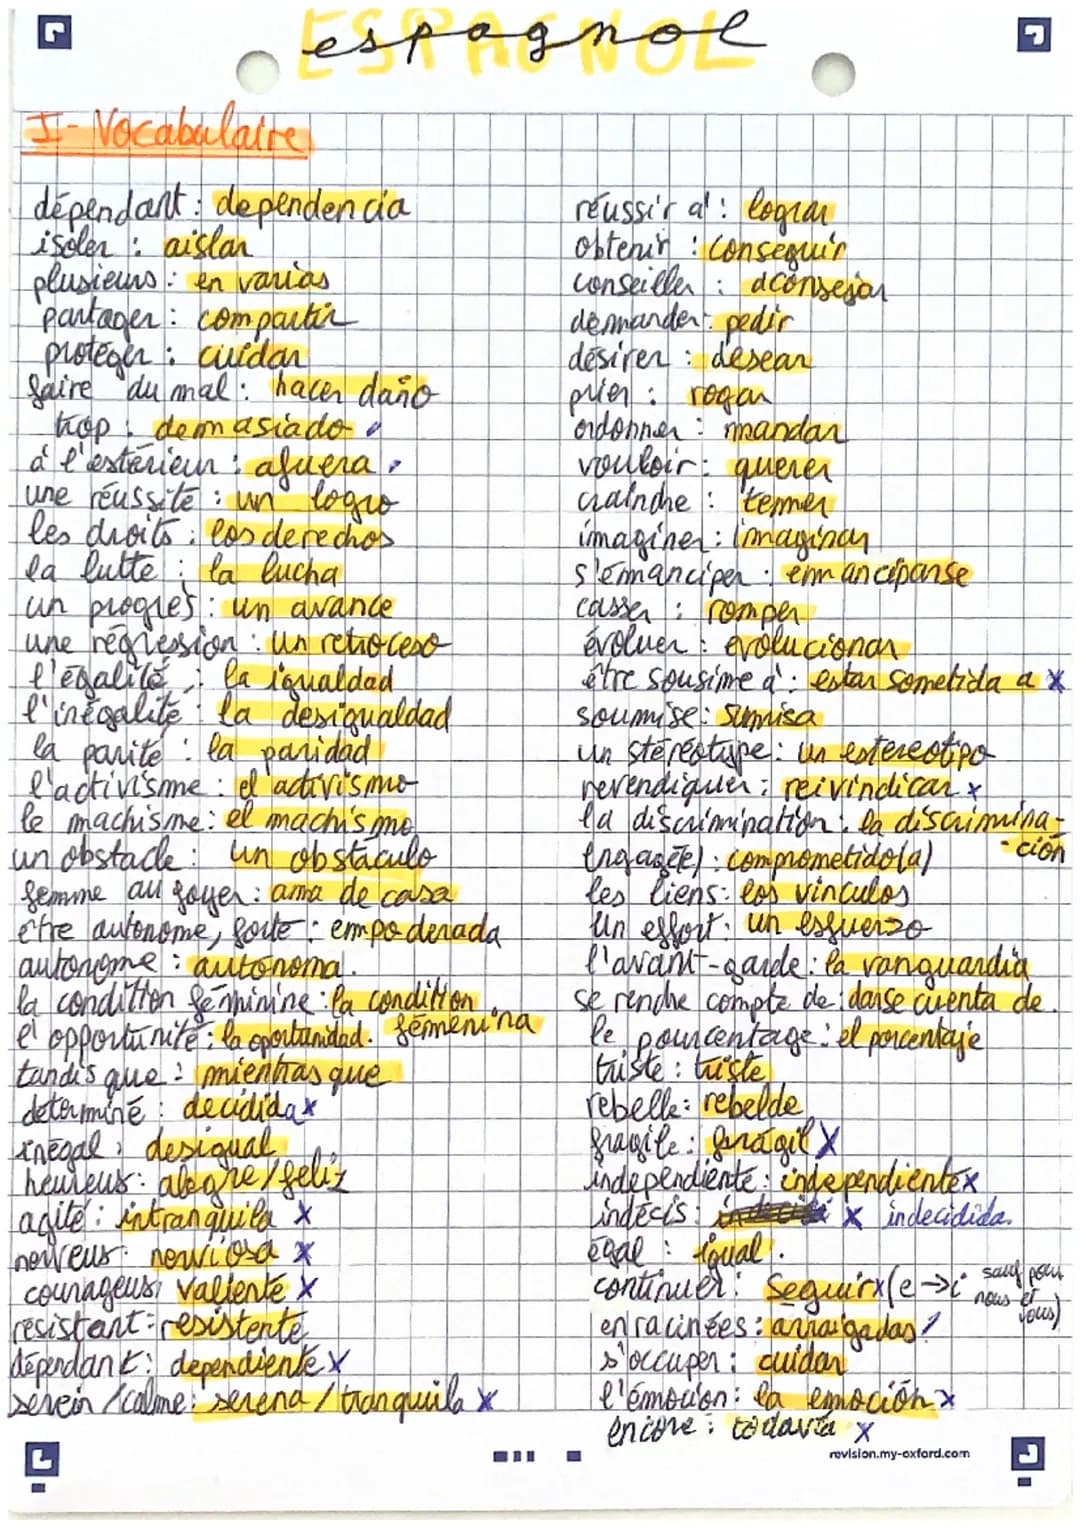 ESPAGNOL
espagnol
I- Vocabulaire
dépendant : dependencia
isoler : aislar
plusieurs : en varias
partager : compartir
protéger : cuidar
faire du mal : hacer daño
trop : demasiado
à l'estérieur : afuera
une réussite : un logro
les droits : los derechos
la lutte : la lucha
un progrès : un avance
une régression : un retroceso
l'égalité : la igualdad
l'inégalité : la desigualdad
la parité : la paridad
l'activisme : el activismo
le machisme : el machismo
un obstacle : un obstáculo
femme au foyer : ama de casa
être autonome, forte : empoderada
autonome : autónoma.
la condition féminine : la condition
femenina
l'opportunité : la oportunidad.
tandis que : mientras que
determiné : decidida x
inégal : desigual
heureus : alegre/feliz
agité : intranquila x
nerveus : nerviosa x
courageus : valiente x
résistant : resistente
dépendant : dependiente x
serein /calme : serena / tranquila x
réussir à : lograr
obtenir : conseguir
conseiller : aconsejar
demander : pedir
désirer : desear
prier : rogar
ordonner : mandar
vouloir : querer
craindre : temer
imaginer : imaginar
s'émanciper : emanciparse
casser : romper
évoluer : evolucionar
être sousime à : estar sometida a x
soumise : sumisa
un stéréotype : un estereotipo
revendiquer : reivindicar x
la discrimination : la discrimina-
-ción
engagé(e) : comprometido(a)
les liens : los vinculos
un effort : un esfuerzo
l'avant-garde : la vanguardia
se rendre compte de : darse cuenta de.
le pourcentage : el porcentaje
triste : triste
rebelle : rebelde
fragile : frágil x
independiente : independiente x
indécis : x indecidida.
égal : igual.
continuer : Seguir x (e → i sauf pour
nous et
vous)
enracinées : arraigadas
s'occuper : cuidar
l'émotion : la emoción x
encore : todavía x
revision.my-oxford.com